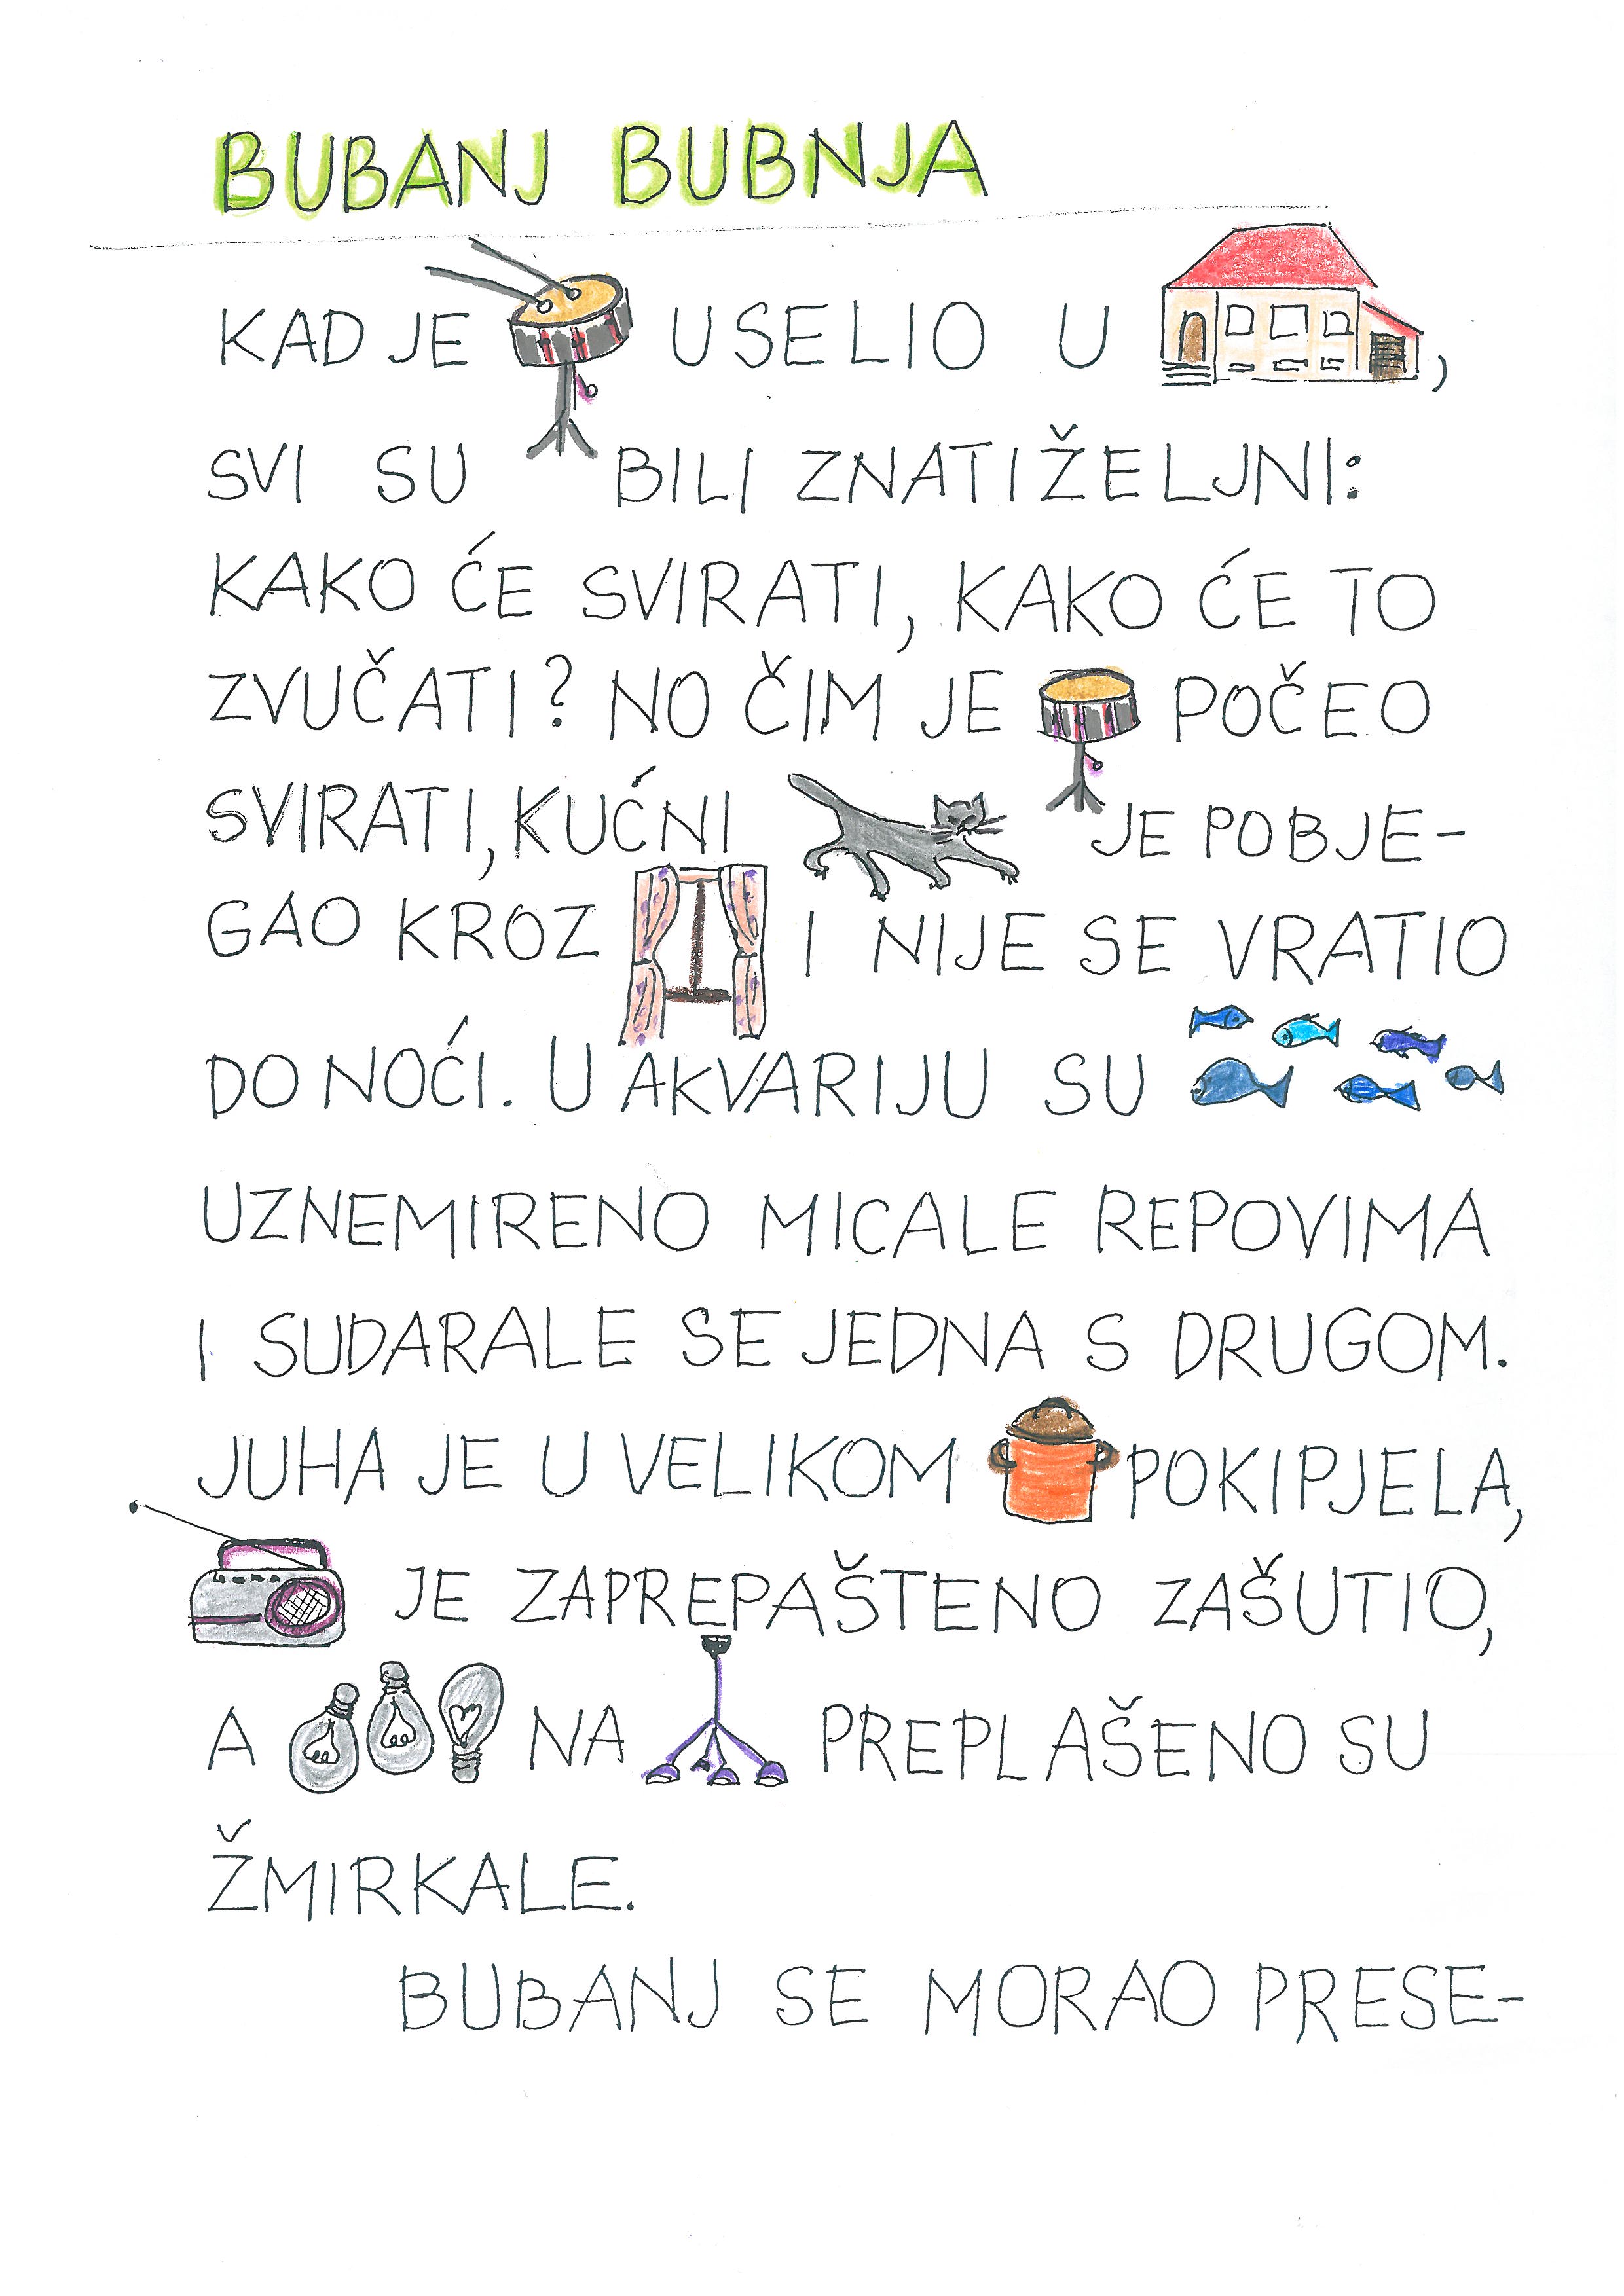 BUBANJ BUBNJA
KAD JE USELIO U ,
SVI SU BILI ZNATIŽELJNI:
KAKO ĆE SVIRATI, KAKO ĆE TO
ZVUČATI? NO ČIM JE POČEO
SVIRATI, KUĆNI JE POBJE-
GAO KROZ I NIJE SE VRATIO
DO NOĆI. U AKVARIJU SU
UZNEMIRENO MICALE REPOVIMA
I SUDARALE SE JEDNA S DRUGOM.
JUHA JE U VELIKOM POKIPJELA,
JE ZAPREPAŠTENO ZAŠUTIO,
A NA PREPLAŠENO SU
ŽMIRKALE.
BUBANJ SE MORAO PRESE-